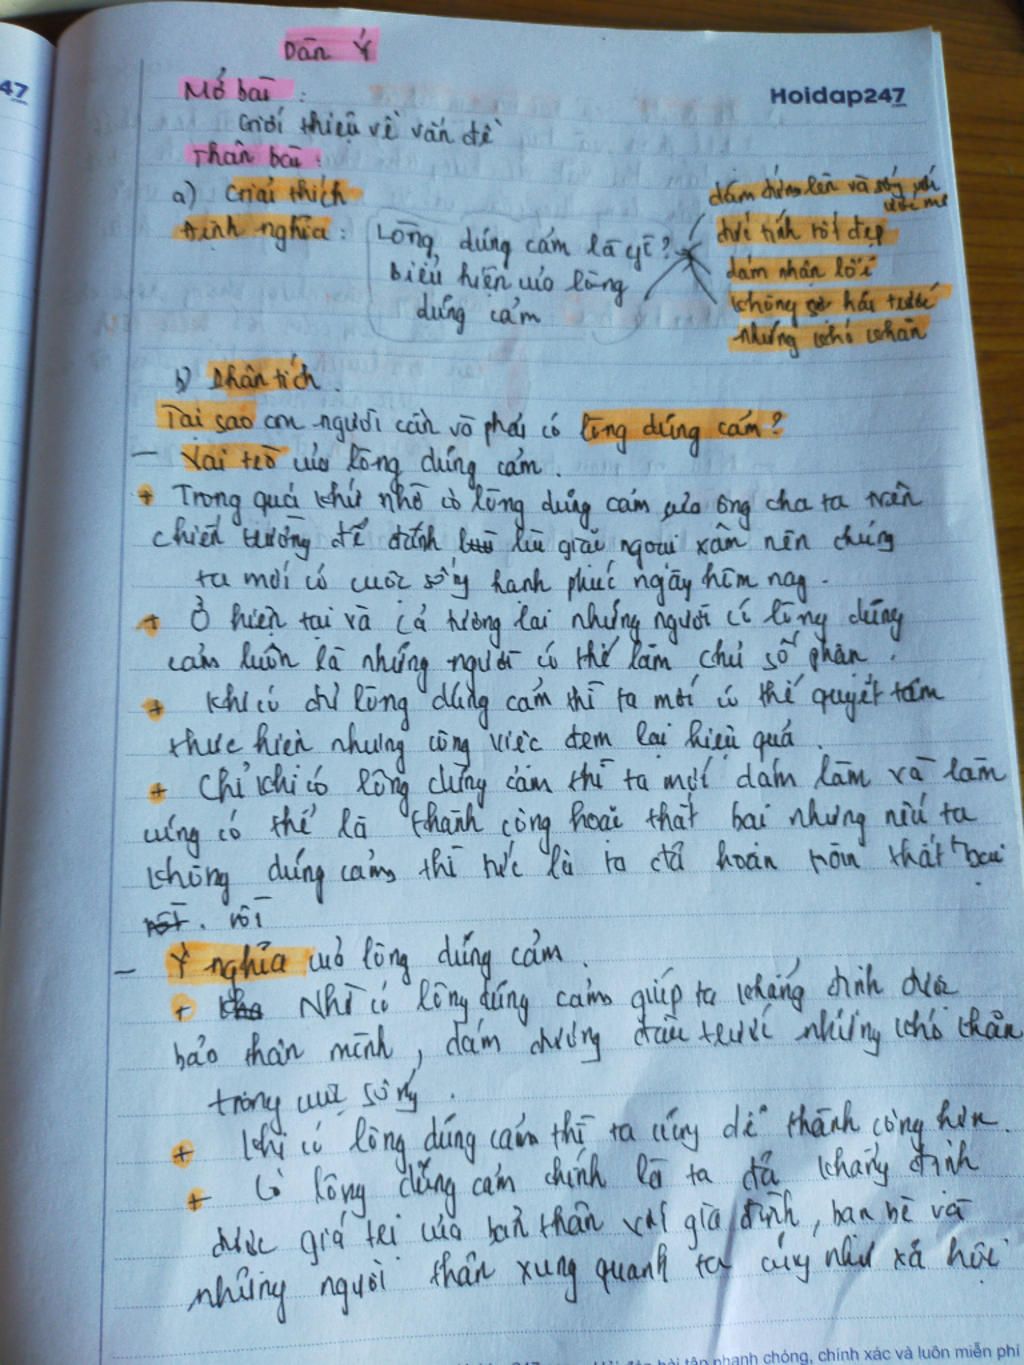 Dàn Ý
47
Mở bài :
Hoidap247
Giới thiệu về vấn đề
Thân bài :
a) Giải thích
Định nghĩa : Lòng dũng cảm là gì?
Biểu hiện của lòng
dũng cảm
dám đứng lên và sống với
ước mơ
đức tính tốt đẹp
dám nhận lỗi
không sợ hãi trước
những khó khăn
b) Phân tích.
Tại sao con người cần và phải có lòng dũng cảm?
- Vai trò của lòng dũng cảm.
+ Trong quá khứ nhờ có lòng dũng cảm của ông cha ta trên
chiến trường để đánh lũ giặc ngoại xâm nên chúng
ta mới có cuộc sống hạnh phúc ngày hôm nay.
+ Ở hiện tại và cả tương lai những người có lòng dũng
cảm luôn là những người có thể làm chủ số phận.
+ Khi có đủ lòng dũng cảm thì ta mới có thể quyết tâm
thực hiện những công việc đem lại hiệu quả.
+ Chỉ khi có lòng dũng cảm thì ta mới dám làm và làm
cũng có thể là thành công hoặc thất bại nhưng nếu ta
không dũng cảm thì tức là ta đã hoàn toàn thất bại
rồi
- Ý nghĩa của lòng dũng cảm.
+ Nhờ có lòng dũng cảm giúp ta khẳng định được
bản thân mình, dám đương đầu trước những khó khăn
trong cuộc sống.
+ Khi có lòng dũng cảm thì ta cũng dễ thành công hơn.
+ Có lòng dũng cảm chính là ta đã khẳng định
được giá trị của bản thân với gia đình, bạn bè và
những người thân xung quanh ta cũng như xã hội
bài tập nhanh chóng, chính xác và luôn miễn phí